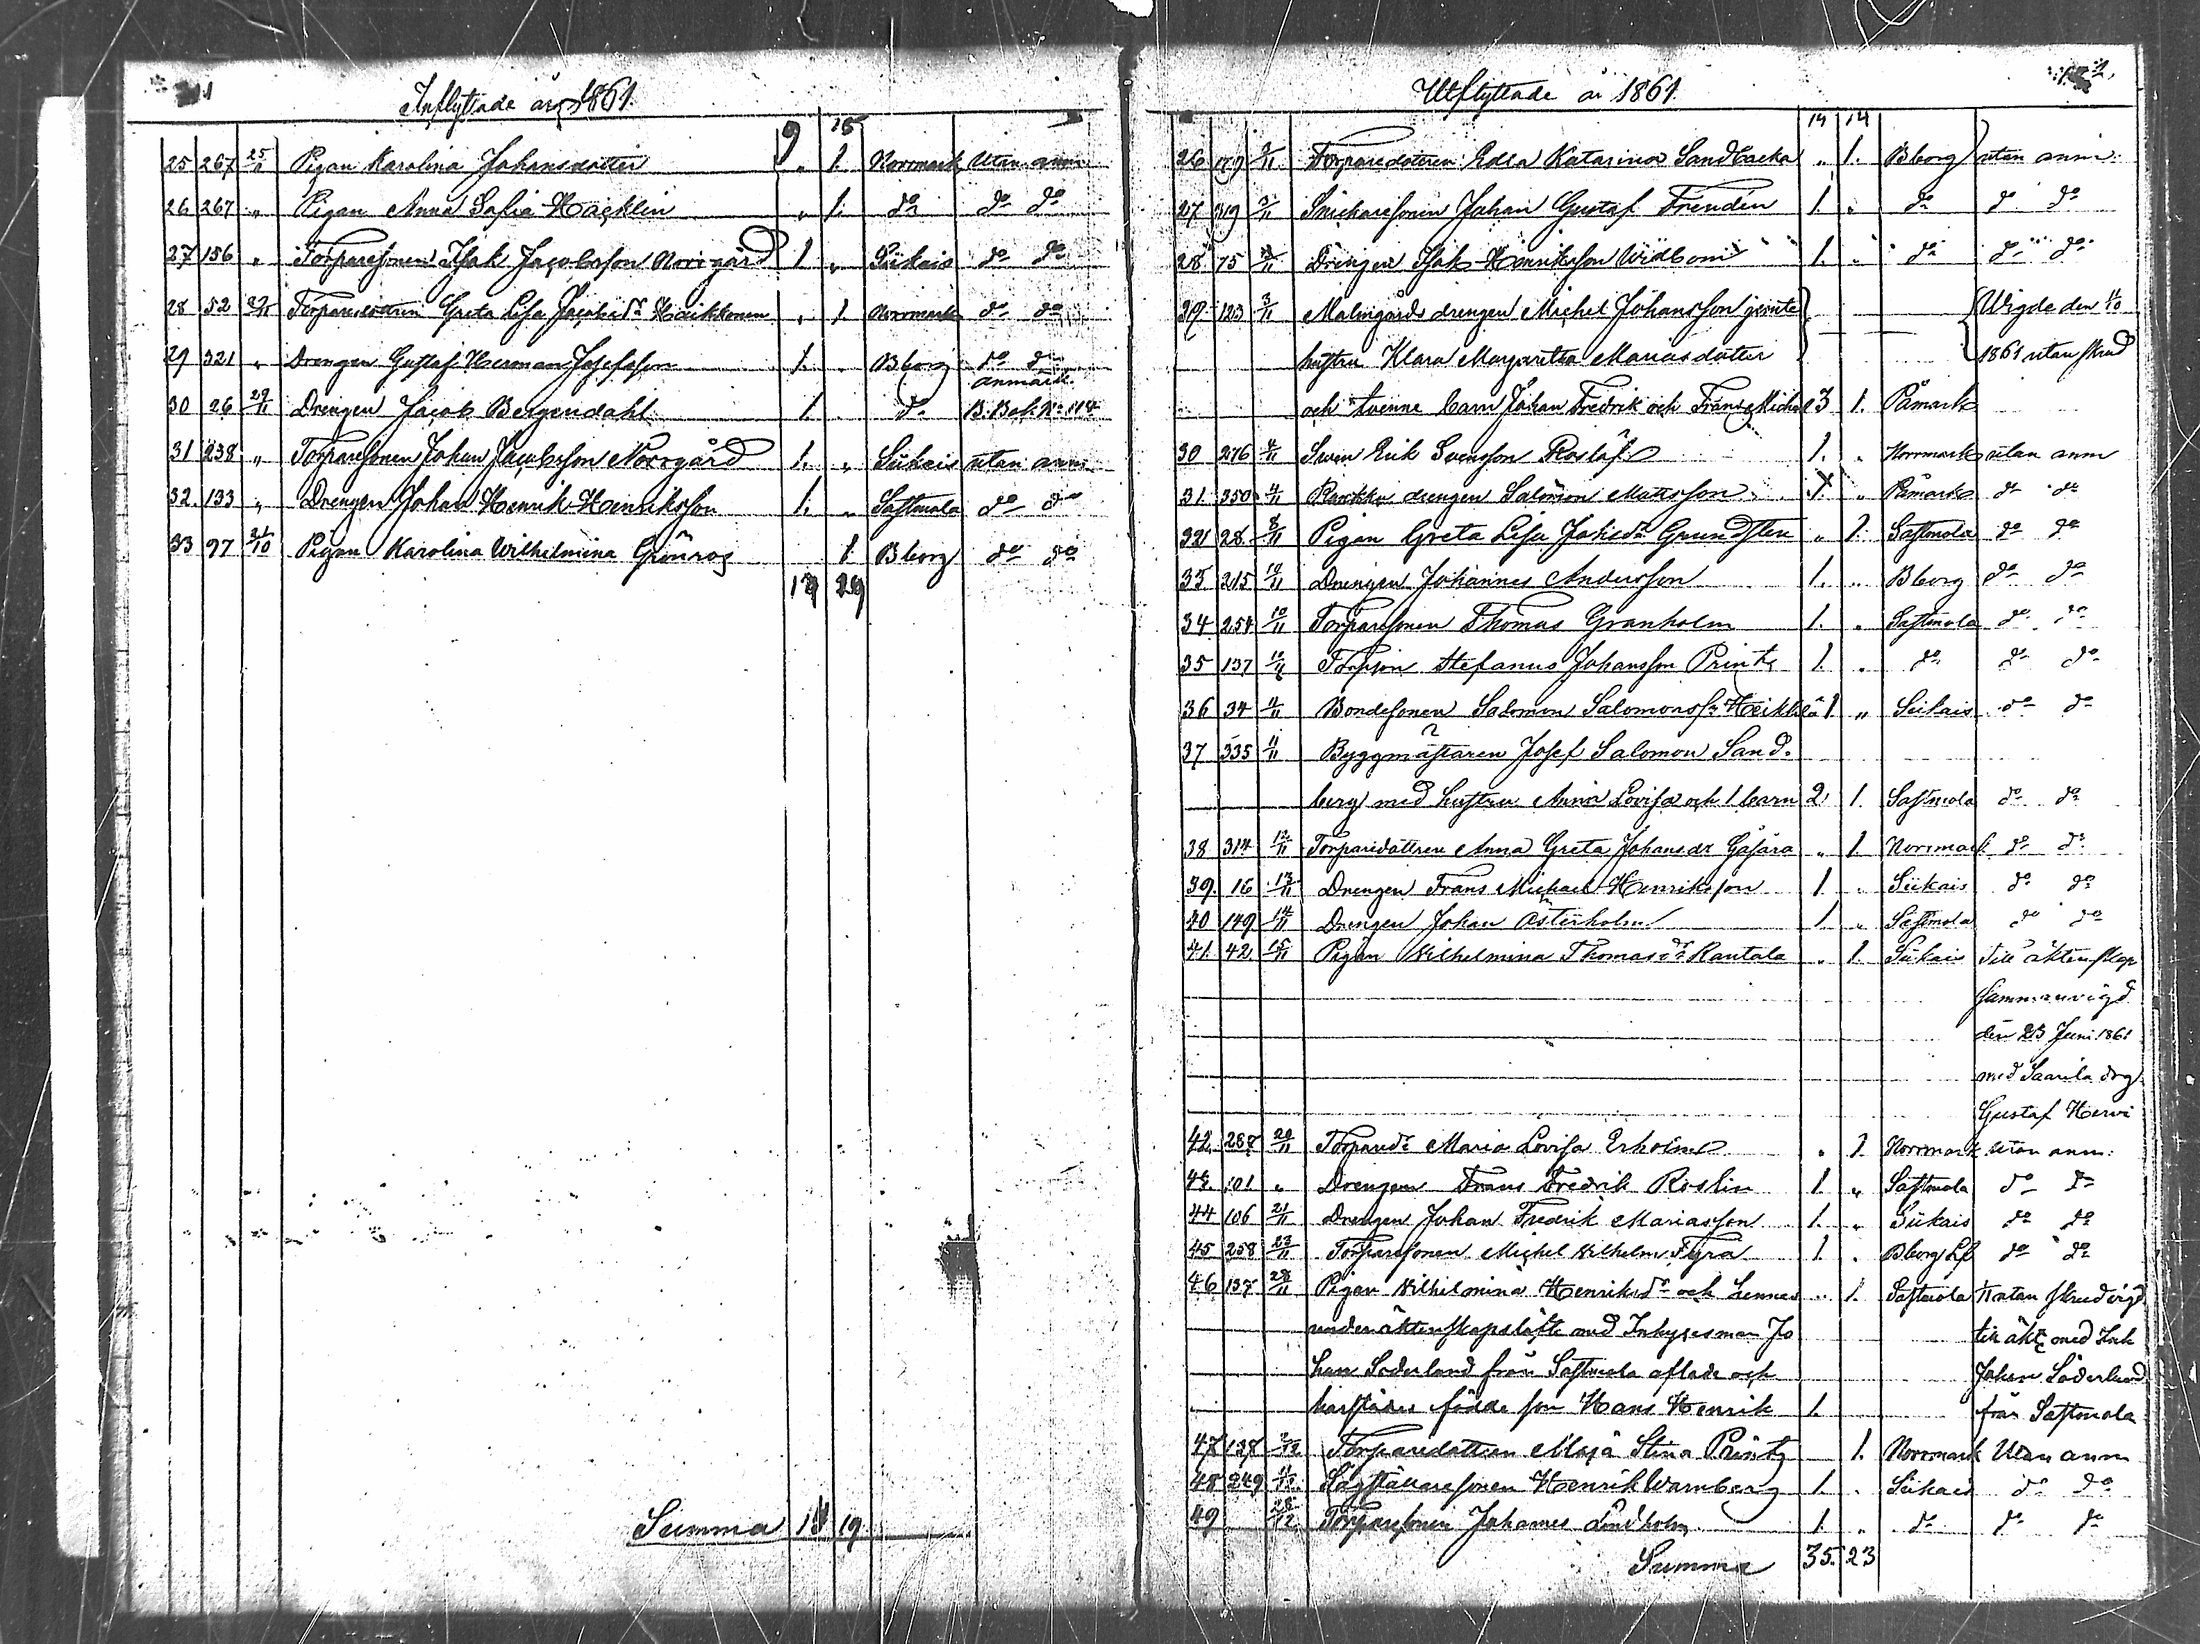 Inflyttade år 1861.
9 15
25 267 25/11 Pigan Karolina Johansdotter „ 1. Norrmark Utan anm
26 267 „ Pigan Anna Sofia Häcklin „ 1. do do do
27 156 „ Torparesonen Isak Jacobsson Norrgård 1 „ Siikais do do
28 52 Torparedottren Greta Lisa Jacobsdr Haikkonen „ 1. Norrmark do do
29 321 „ Drengen Gustaf Herman Josefsson 1. „ Bborg do do
anmärk.
30 26 29/11 Drengen Jacob Bergendahl 1. do B. Bok. No 114
31 238 „ Torparesonen Johan Jacobsson Norrgård 1. „ Siikais utan anm
32 133 „ Drengen Johan Henrik Henriksson 1. „ Sastmola do do
33 97 21/10 Pigan Karolina Wilhelmina Grönros 1 Bborg do do
Summa 19
Utflyttade år 1861.
14 14
26 Torparedottren Edla Katarina Sandbacka „ 1. Bborg utan anm.
27 319 3/11 Snickaresonen Johan Gustaf Frendén 1. „ do do do
28 75 Drengen Isak Henriksson Widbom 1. „ do do do
29 123 3/11 Malmgårds drengen Michel Johansson jemte Wigde den 4/10
hustru Klara Margaretha Mariasdotter 1861 utan skrud
och tvenne barn Johan Fredrik och Frans Michel 3 1. Påmark
30 276 4/11 Sven Erik Svensson Roslöf 1. „ Norrmark utan anm
31 350 4/11 drengen Salomon Mattsson 1. „ Påmark do do
32 28 8/11 Pigan Greta Lisa Johsdr Grundsten „ 1. Sastmola do do
33 215 10/11 Drengen Johannes Andersson 1. „ Bborg do do
34 254 10/11 Torparesonen Thomas Granholm 1. „ Sastmola do do
35 137 10/11 Torpson Stefanus Johansson Printz 1. „ do do do
36 34 11/11 Bondesonen Salomon Salomonss: Heikkilä 1 „ Siikais do do
37 335 11/11 Byggmästaren Josef Salomon Sand-
berg med hustru Anna Lovisa och 1 barn 2. 1. Sastmola do do
38 314 12/11 Torparedottren Anna Greta Johansdr Gåsåra „ 1. Norrmark do do
39. 16 13/11 Drengen Frans Michael Henriksson 1. „ Siikais do do
40 149 14/11 Drengen Johan Österholm 1. „ Sastmola do do
41. 42 15/11 Pigan Wilhelmina Thomasdr Rantala „ 1. Siikais till äktenskap
sammanvigd
den 23 Juni 1861
med Saarila drg
Gustaf Hervi
42. 287 20/11 Torparedr Maria Lovisa Erholm „ 1. Norrmark utan anm.
43. 101 „ Drengen Frans Fredrik Roslin 1. „ Sastmola do do
44 106 21/11 Drengen Johan Fredrik Mariasson 1. „ Siikais do do
45 258 23/11 Torparesonen Michel Wilhelm Fyra 1. „ Bborg Lf do do
46 137 28/11 Pigan Wilhelmina Henriksdr och hennes „ 1. Sastmola utan skrud vigd
under äktenskapslöfte med Inhysesman Jo till äkt: med Inh
han Söderlund från Sastmola aflade och Johan Söderlund
härstädes födde son Hans Henrik 1. från Sastmola
47 137 2/12 Torparedottren Maja Stina Printz 1. Norrmark Utan anm
48 249 Sågställaresonen Henrik Warnberg 1. „ Siikais do do
49 28/12 Torparesonen Johannes Lindholm 1. „ do do do
Summa 35. 23